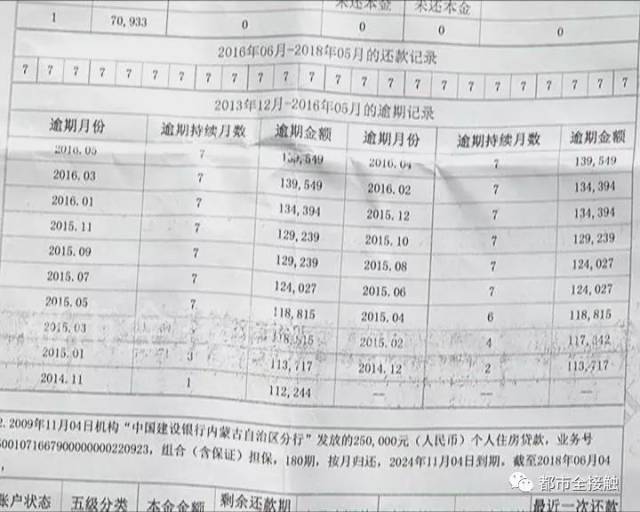 未还本金 未还本金
1 70,933 0 0 0 0
2016年06月-2018年05月的还款记录
7 7 7 7 7 7 7 7 7 7 7 7 7 7 7 7 7 7 7 7 7 7 7 7
2013年12月-2016年05月的逾期记录
逾期月份 逾期持续月数 逾期金额 逾期月份 逾期持续月数 逾期金额
2016.05 7 139,549 2016.04 7 139,549
2016.03 7 139,549 2016.02 7 134,394
2016.01 7 134,394 2015.12 7 134,394
2015.11 7 129,239 2015.10 7 129,239
2015.09 7 129,239 2015.08 7 124,027
2015.07 7 124,027 2015.06 7 124,027
2015.05 7 118,815 2015.04 6 118,815
2015.03 118,815 2015.02 4 117,342
2015.01 3 113,717 2014.12 2 113,717
2014.11 1 112,244 — — —
2.2009年11月04日机构“中国建设银行内蒙古自治区分行”发放的250,000元（人民币）个人住房贷款，业务号
5001071667900000000220923，组合（含保证）担保，180期，按月归还，2024年11月04日到期，截至2018年06月04
，
账户状态 五级分类 本金余额 剩余还款期 最近一次还款
都市全接触